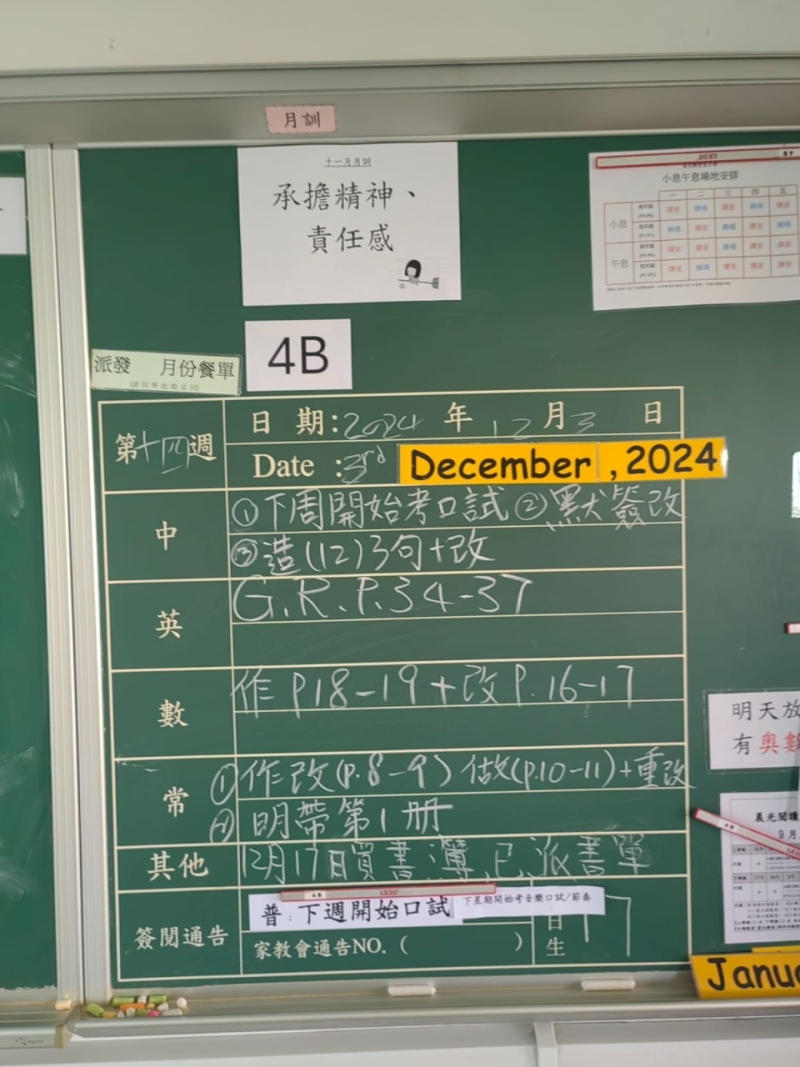 月訓
十一月月訓
承擔精神、
責任感
小息午息場地安排
一 二 三 四 五
小息
午息
派發 月份餐單
4B
第十四週
日期:2024年12月3日
Date :3rd December ,2024
中
①下周開始考口試②默簽改
③造(12)3句+改
英
G.R.P.34-37
數
作P18-19+改P.16-17
常
①作改(P.8-9)做(p.10-11)+重改
② 明帶第1册
其他
12月17日買書簿,已派書單
簽閱通告
普:下週開始口試
下星期開始考音樂口試/節奏
家教會通告NO.( )
日
生
17
明天放
有奧數
晨光閱讀
9月
Janua